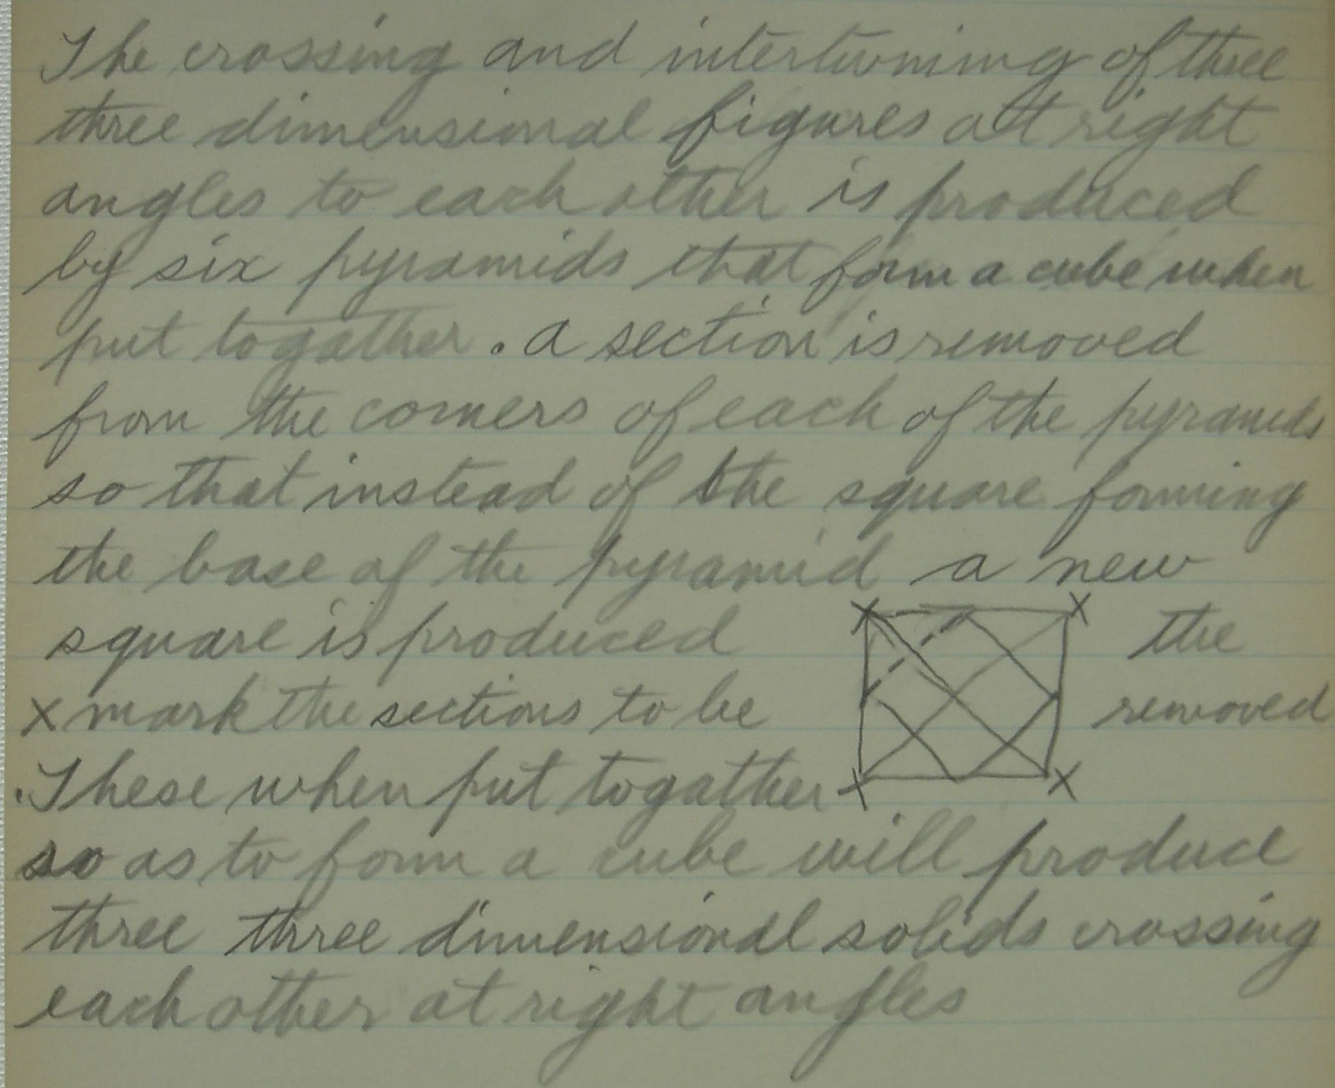 The crossing and intertwining of three
three dimensional figures at right
angles to each other is produced
by six pyramids that form a cube when
put togather. a section is removed
from the corners of each of the pyramids
so that instead of the square forming
the base of the pyramid a new
square is produced the
x mark the sections to be removed
. These when put togather
so as to form a cube will produce
three three dimensional solids crossing
each other at right angles